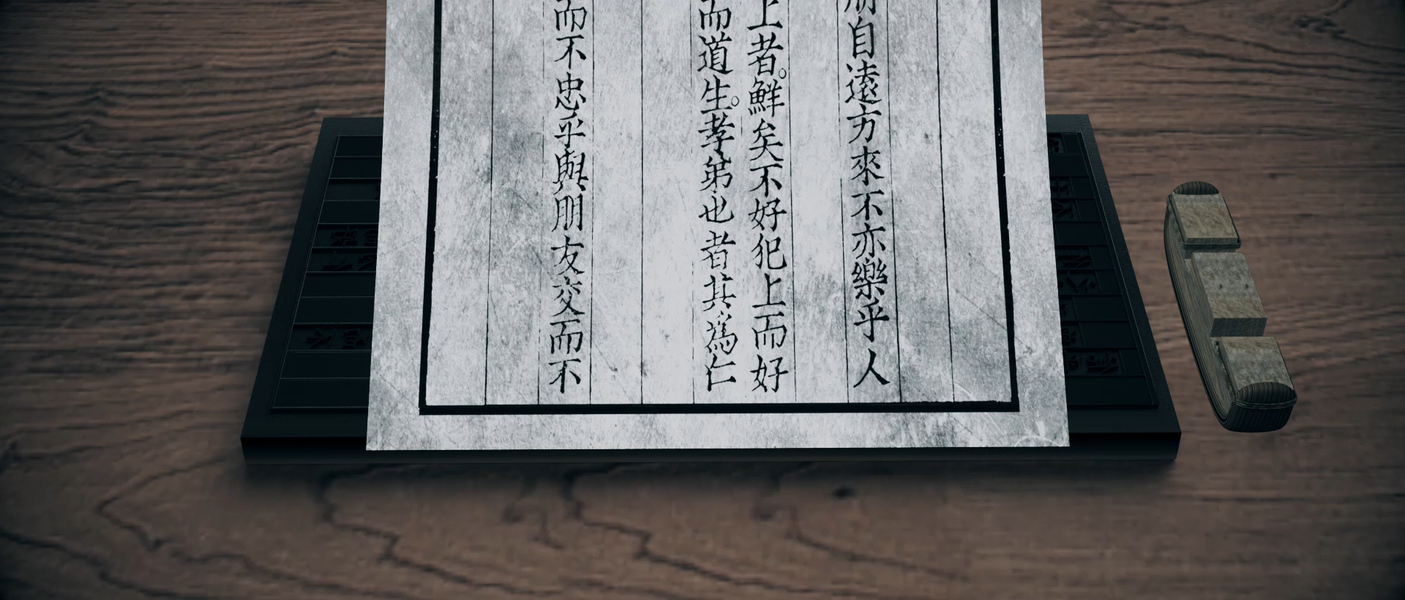 朋自遠方來不亦樂乎人
上者。鮮矣不好犯上而好
而道生。孝弟也者其爲仁
而不忠乎與朋友交而不